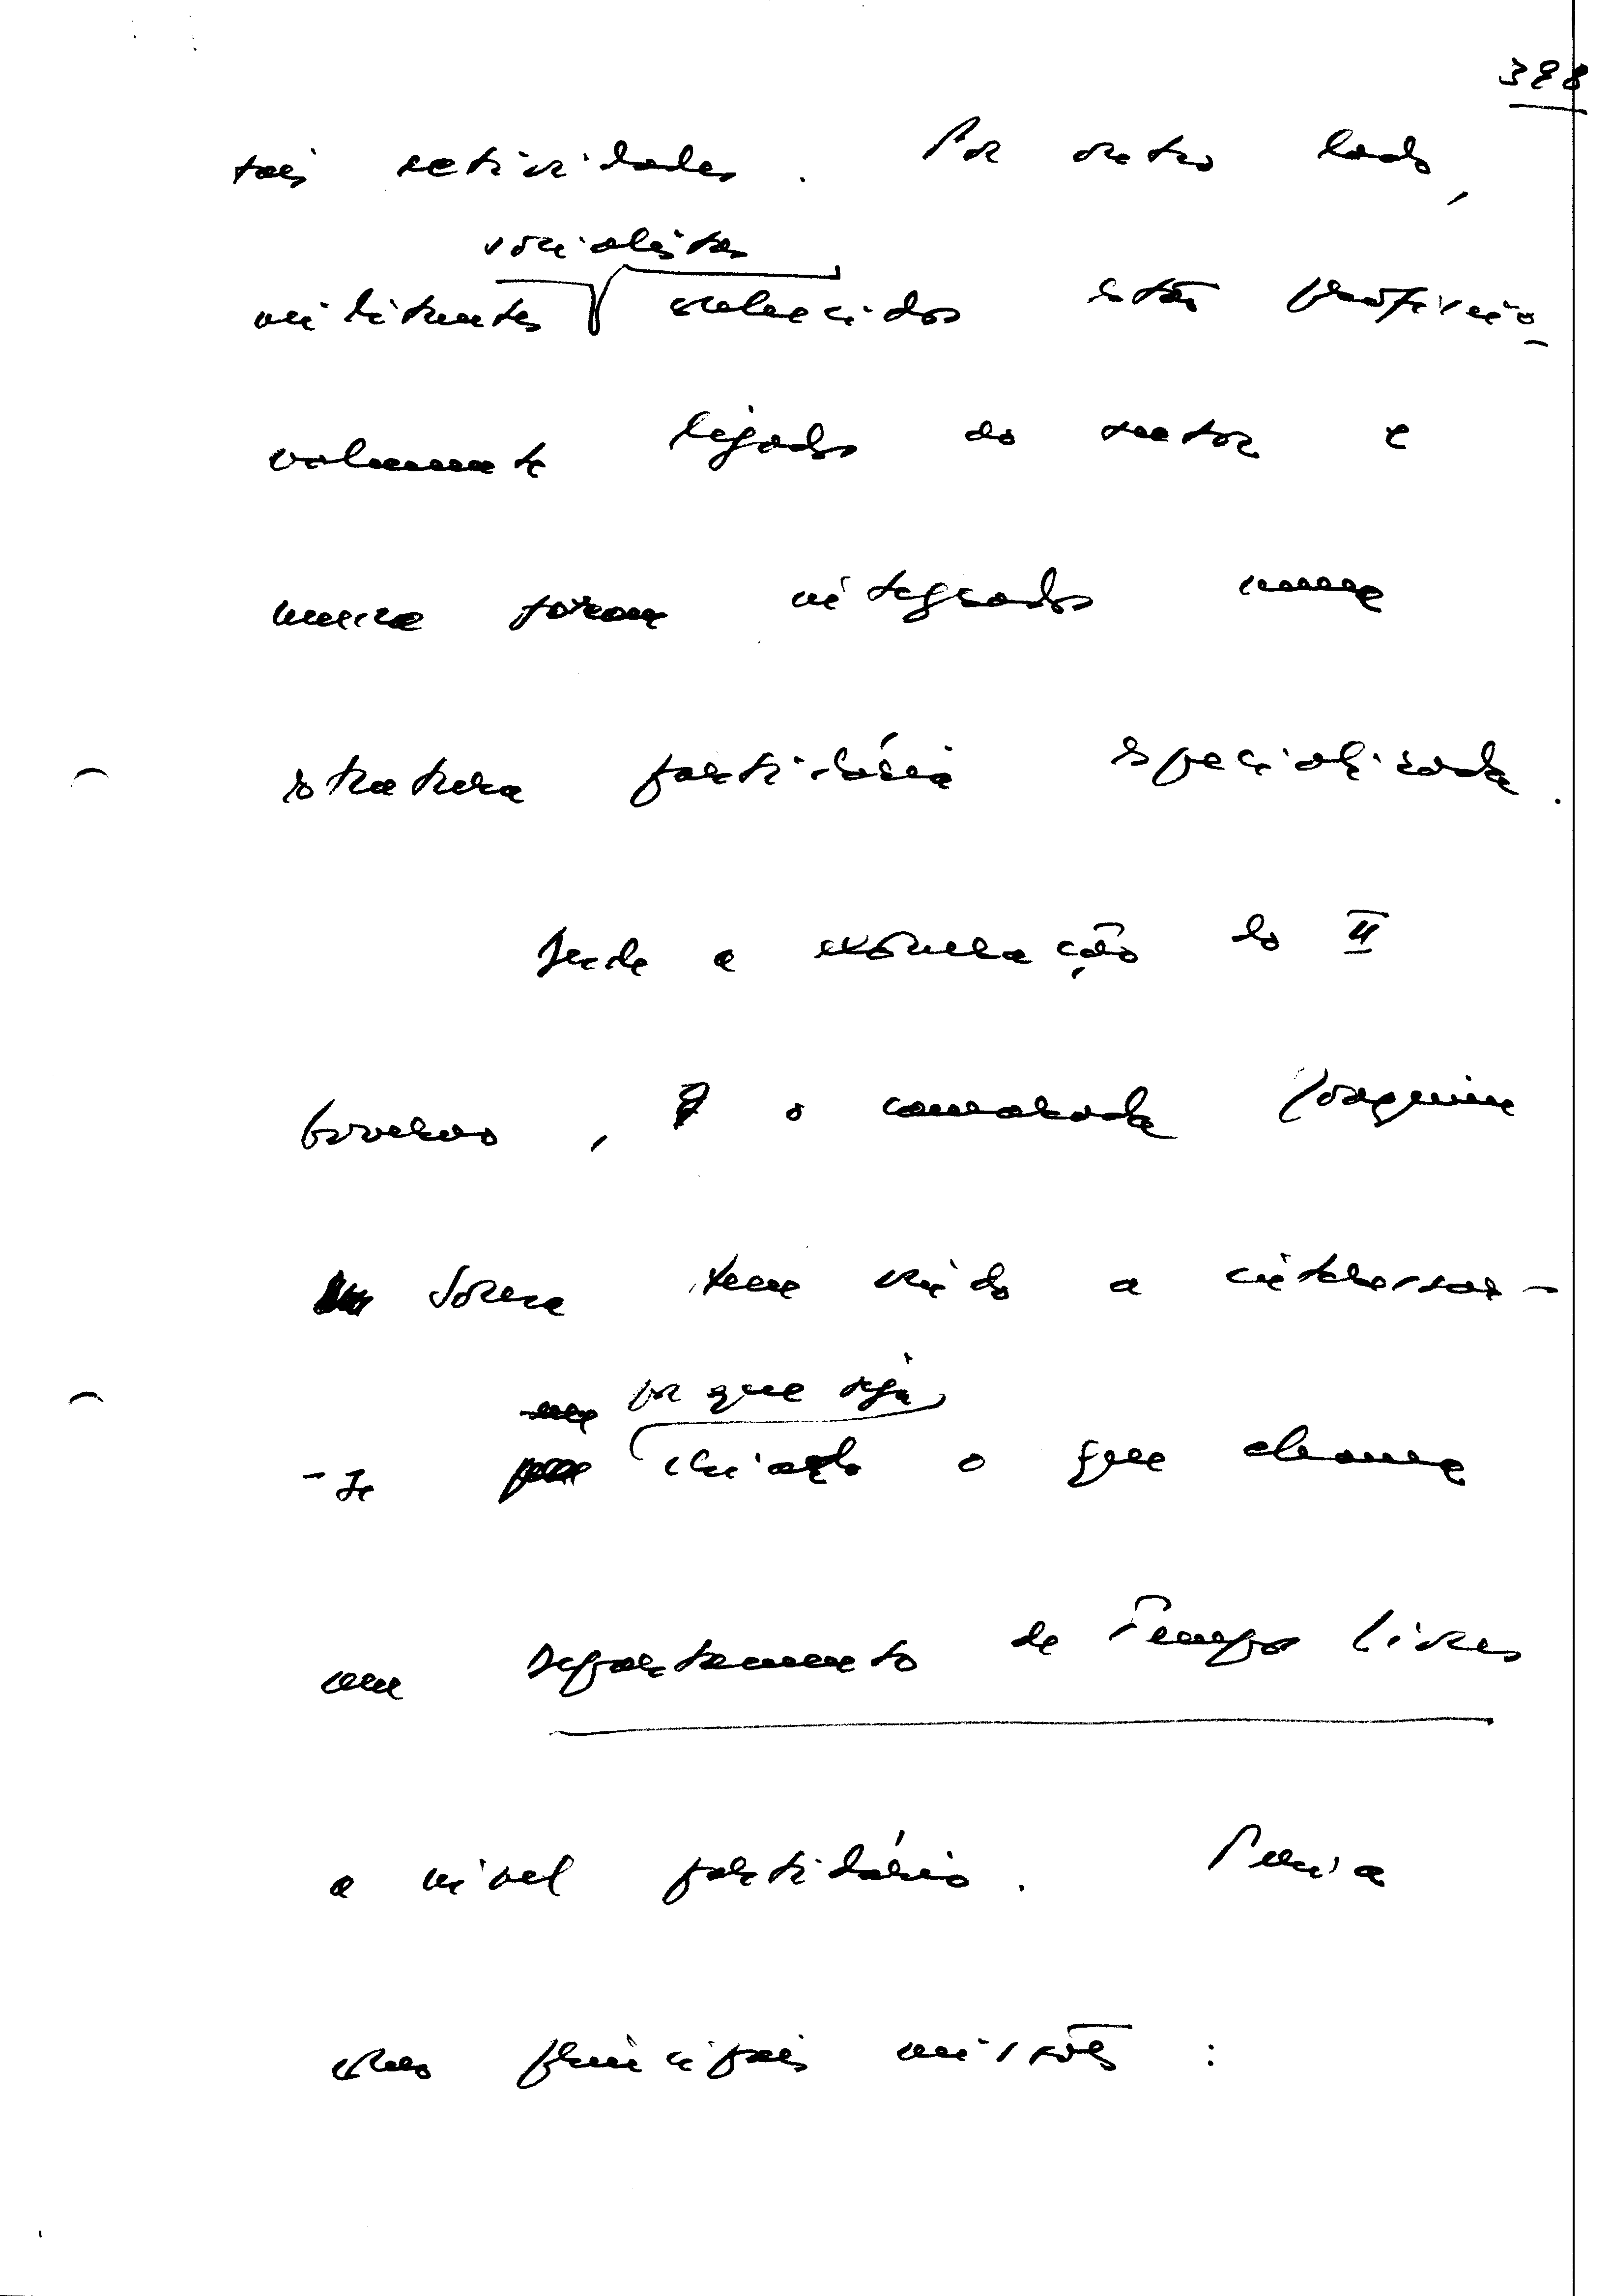 398
tais actividades. Por outro lado,
socialistas
militantes esclarecidos estão profissio-
nalmente ligados ao sector e
nunca foram integrados numa
estrutura partidária especializada.
Desde a exoneração do II
Governo, o camarada Joaquim
Sousa tem vindo a interessar-
por que seja
-se criado o que chama
um Departamento de Tempos Livres
a nível partidário. Seria
suas principais missões :